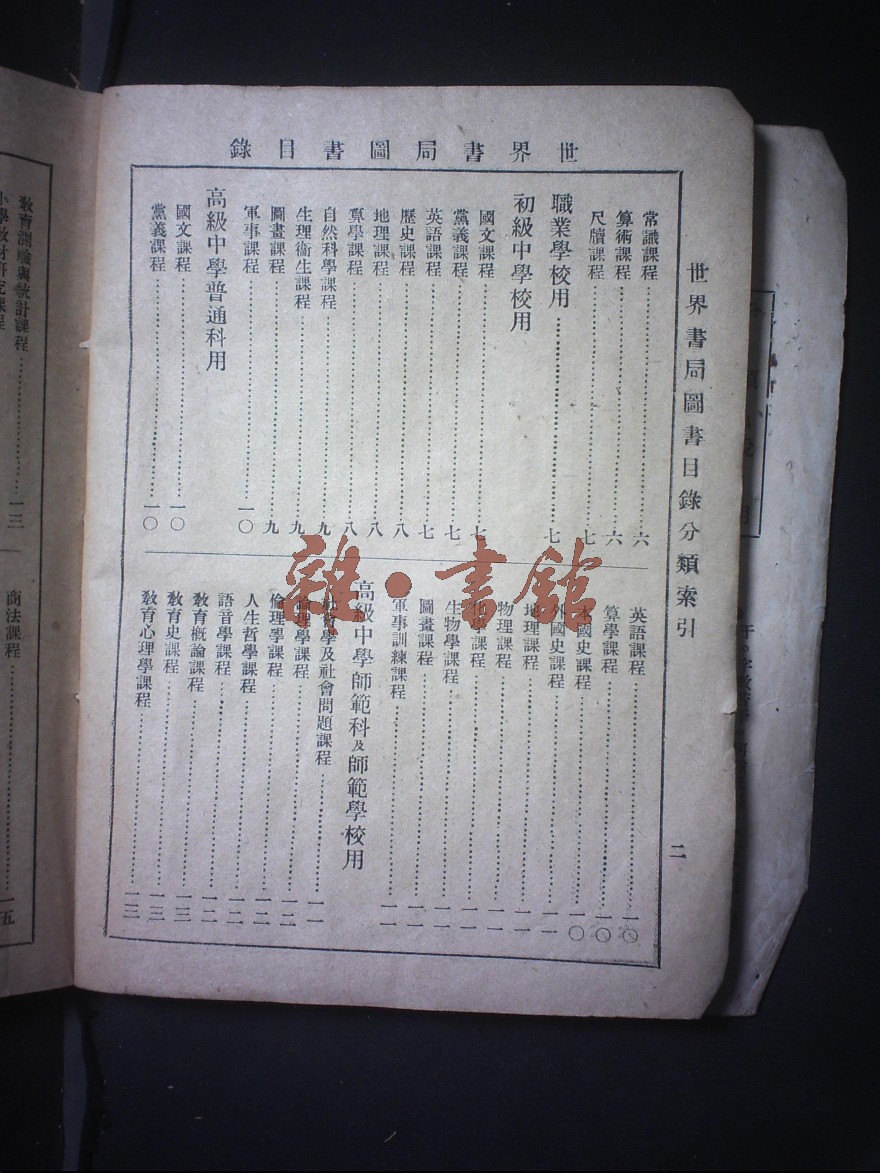 世界書局圖書目錄
世界書局圖書目錄分類索引
二
常識課程……六
算術課程……六
尺牘課程……七
職業學校用……七
初級中學校用
國文課程……七
黨義課程……七
英語課程……七
歷史課程……八
地理課程……八
算學課程……八
自然科學課程……九
生理衞生課程……九
圖畫課程……九
軍事課程……一〇
高級中學普通科用
國文課程……一〇
黨義課程……一〇
英語課程……一〇
算學課程……一〇
本國史課程……一〇
外國史課程……一一
地理課程……一一
物理課程……一一
課程……一一
生物學課程……一一
圖畫課程……一一
軍事訓練課程……一一
高級中學師範科及師範學校用
社會學及社會問題課程……一一
論理學課程……一二
倫理學課程……一二
人生哲學課程……一二
語音學課程……一二
教育概論課程……一二
教育史課程……一三
教育心理學課程……一三
教育測驗與統計課程……一三
小學教材研究課程
商法課程……一五
雜·書館